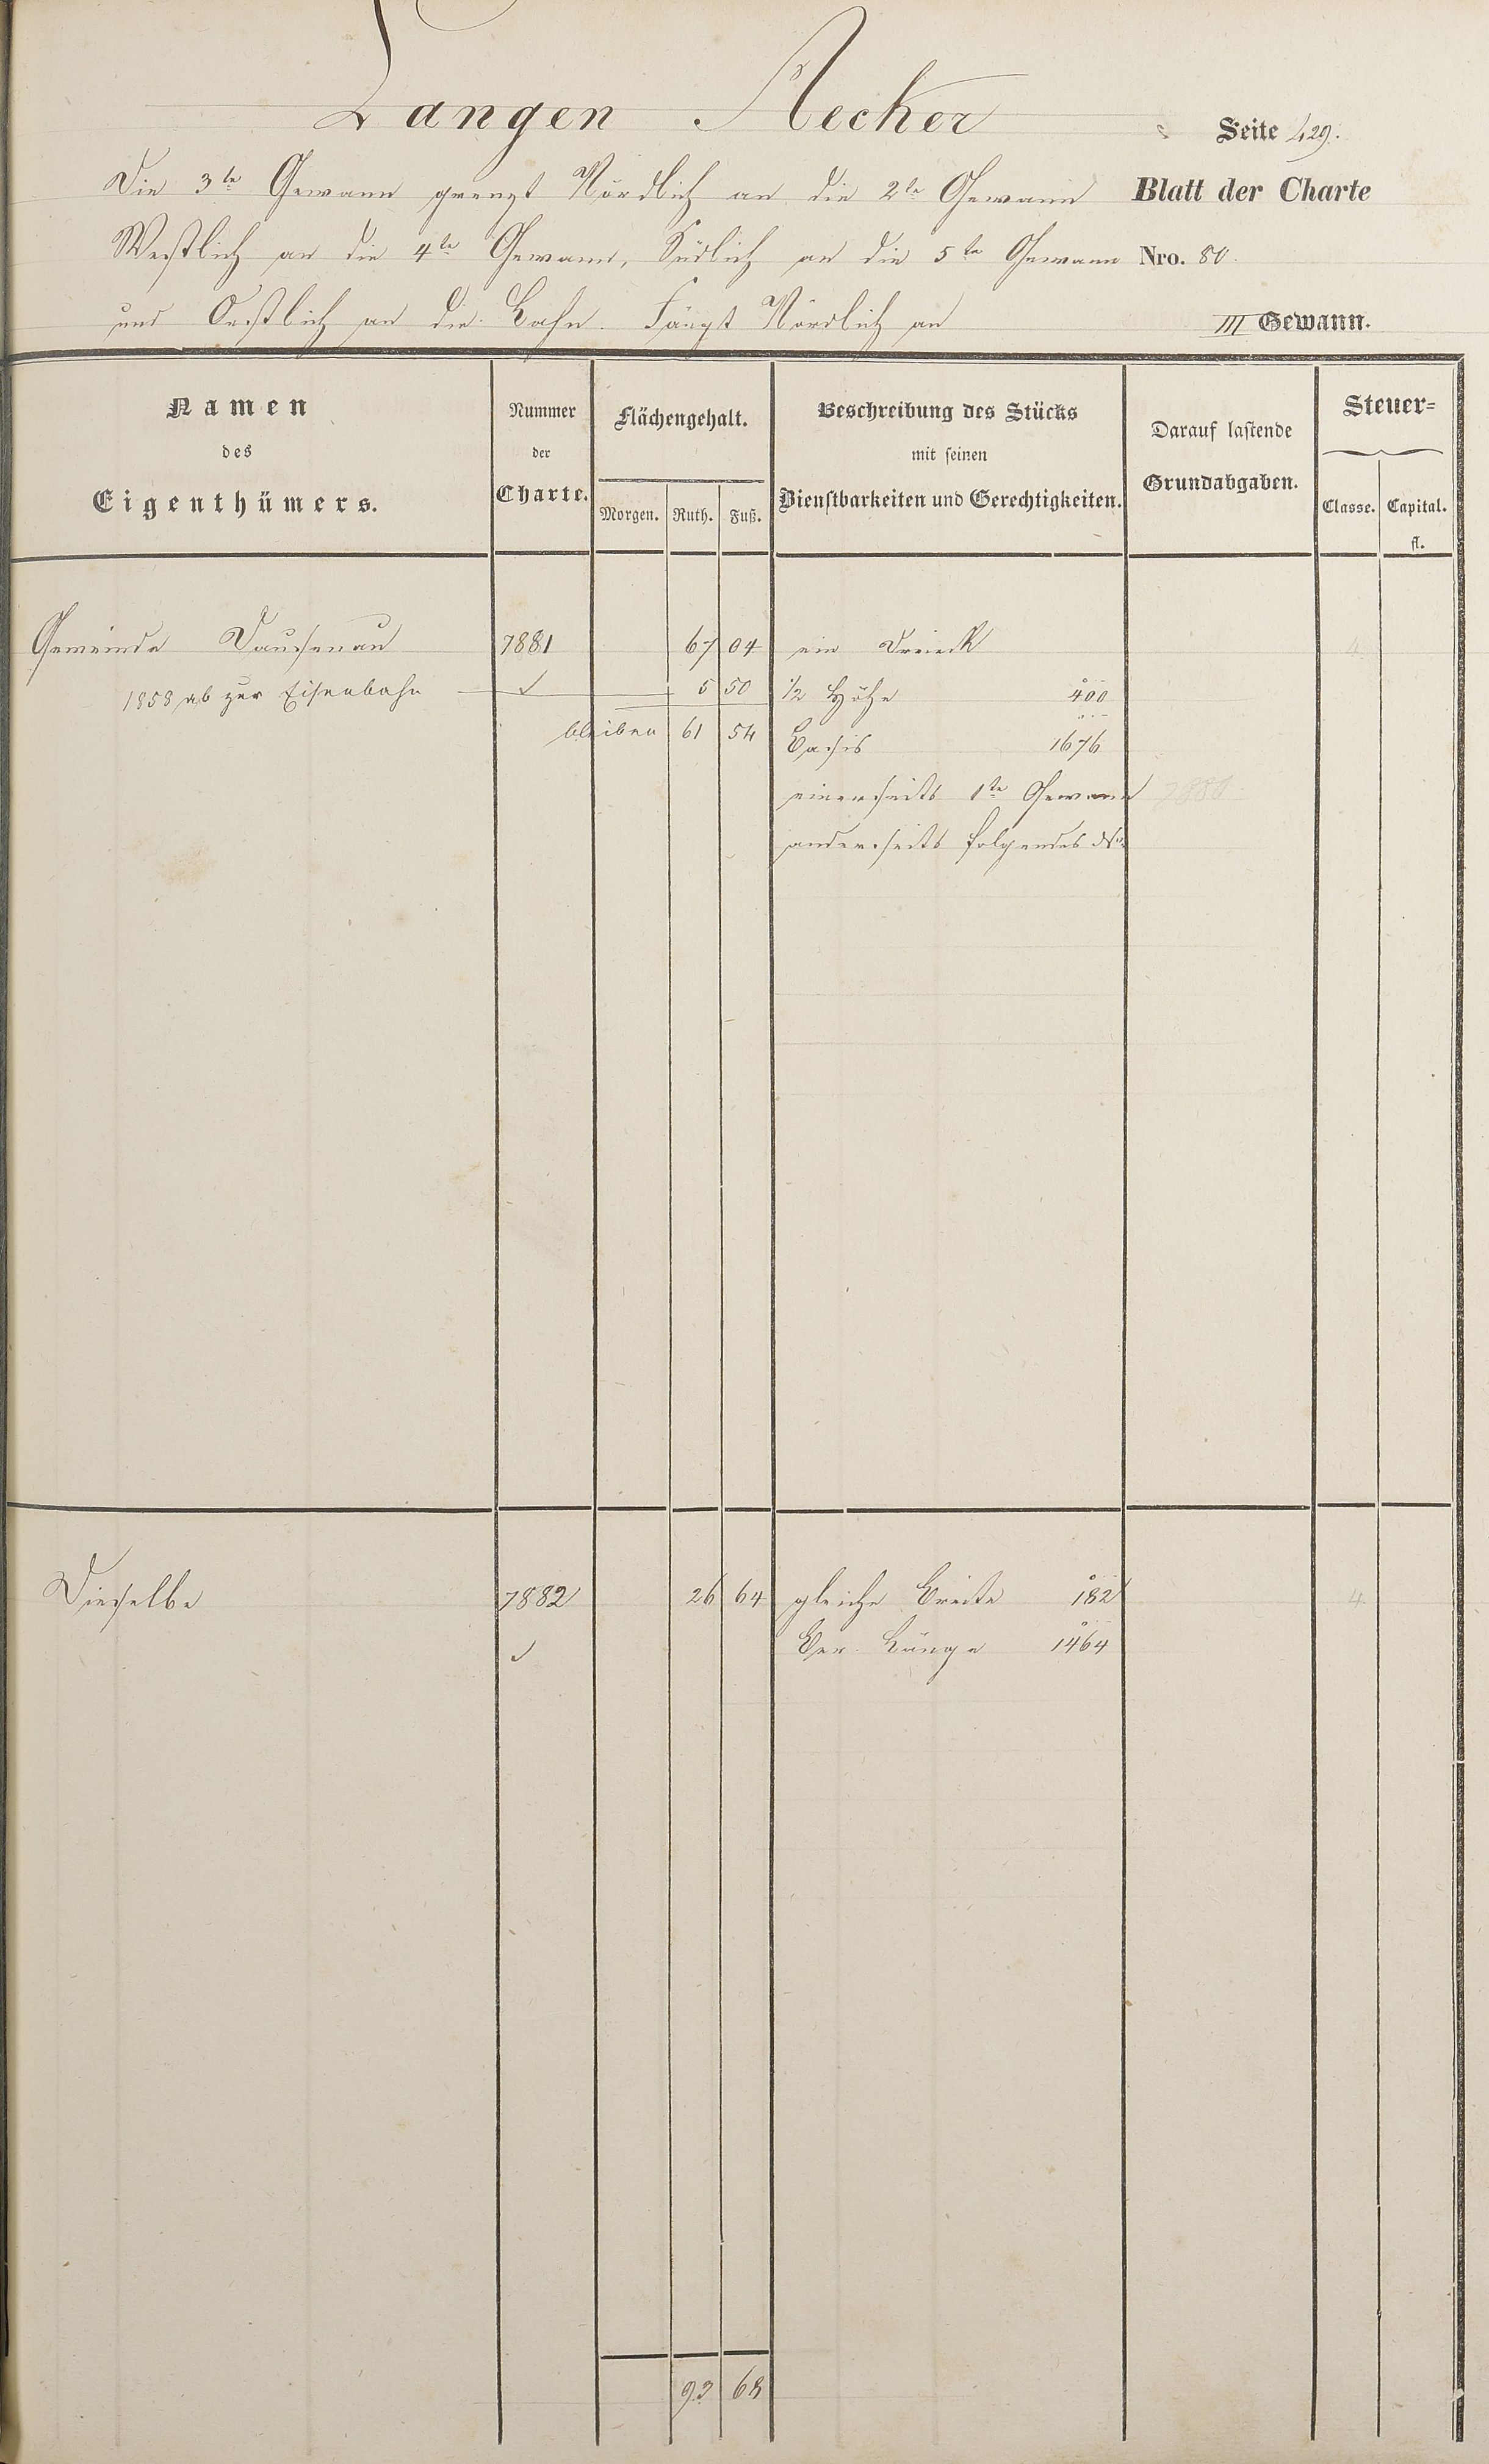 Langen Aecker
Seite 429.
Die 3te Gewann grenzt Nördlich an die 2te Gewann
Blatt der Charte
Westlich an die 4te Gewann, Südlich an die 5te Gewann
Nro. 80
und Oestlich an die Lahn. Fängt Nördlich an
III Gewann.
Namen
des
Eigenthümers.
Nummer
der
Charte.
Flächengehalt.
Morgen. Ruth. Fuß.
Beschreibung des Stücks
mit seinen
Dienstbarkeiten und Gerechtigkeiten.
Darauf lastende
Grundabgaben.
Steuer=
Classe. Capital.
fl.
Gemeinde Dausenau 7881 67 04 ein Dreieck 4
1858 ab zur Eisenbahn 5 50 ½ Höhe 400
bleiben 61 54 Basis 1676
einerseits 1te Gewann 7880
anderseits folgendes No
Dieselbe 7882 26 64 gleiche Breite 182 4
Ver. Länge 1464
93 68